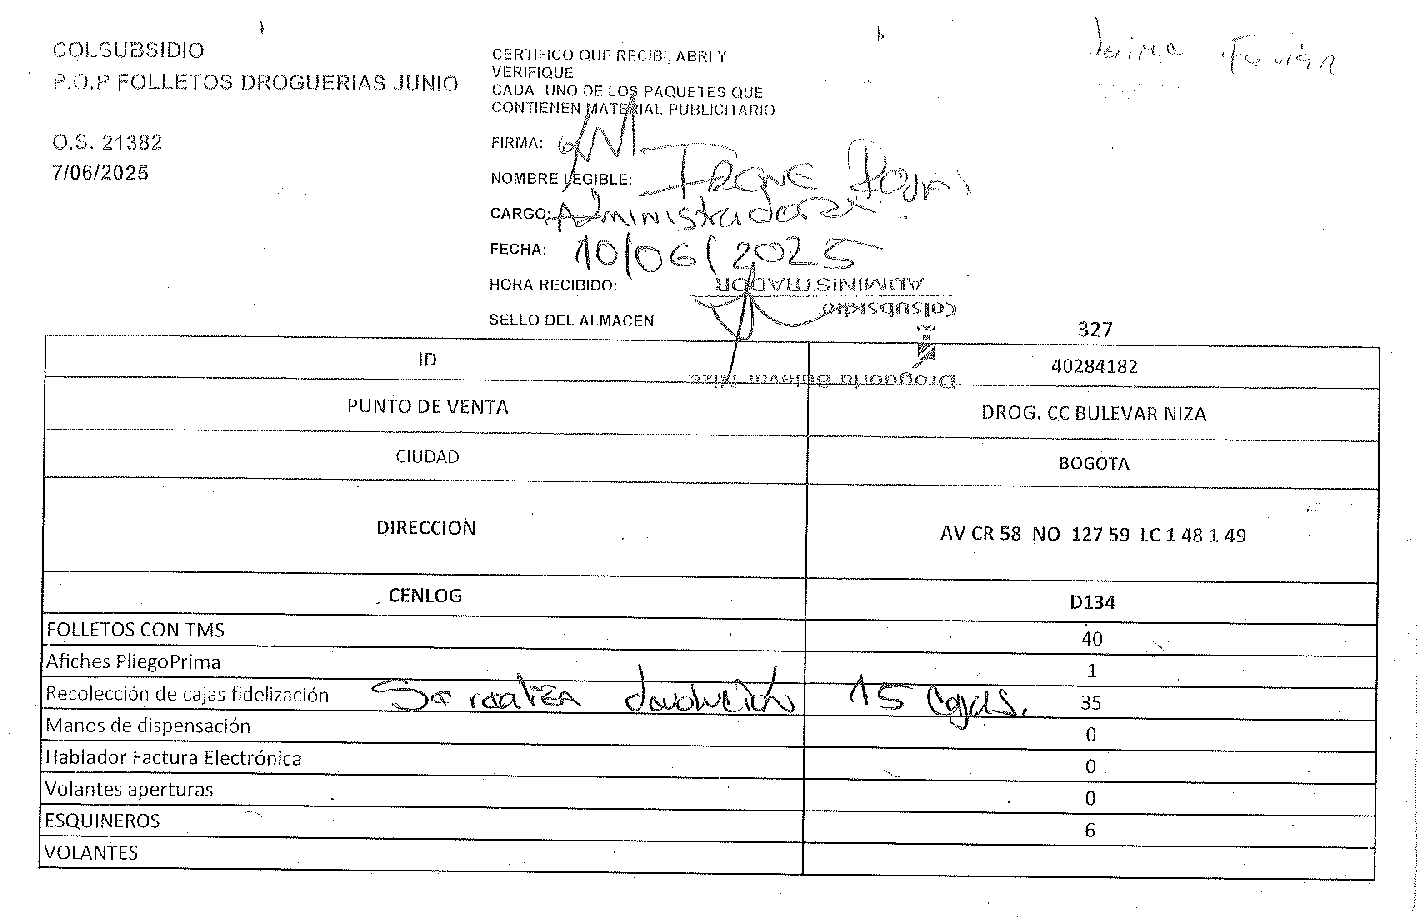 COLSUBSIDIO
P.O.P FOLLETOS DROGUERIAS JUNIO
O.S. 21382
7/06/2025
CERTIFICO QUE RECIBI, ABRI Y
VERIFIQUE
CADA UNO DE LOS PAQUETES QUE
CONTIENEN MATERIAL PUBLICITARIO
FIRMA:
NOMBRE LEGIBLE:
CARGO: Administradora
FECHA: 10/06/2025
HORA RECIBIDO:
SELLO DEL ALMACEN
ADMINISTRADOR
Colsubsidio
Droguería Bulevar Niza
327
ID 40284182
PUNTO DE VENTA DROG. CC BULEVAR NIZA
CIUDAD BOGOTA
DIRECCION AV CR 58 NO 127 59 LC 1 48 1 49
CENLOG D134
FOLLETOS CON TMS 40
Afiches PliegoPrima 1
Recolección de cajas fidelización Se realiza devolución 15 cajas. 35
Manos de dispensación 0
Hablador Factura Electrónica 0
Volantes aperturas 0
ESQUINEROS 6
VOLANTES